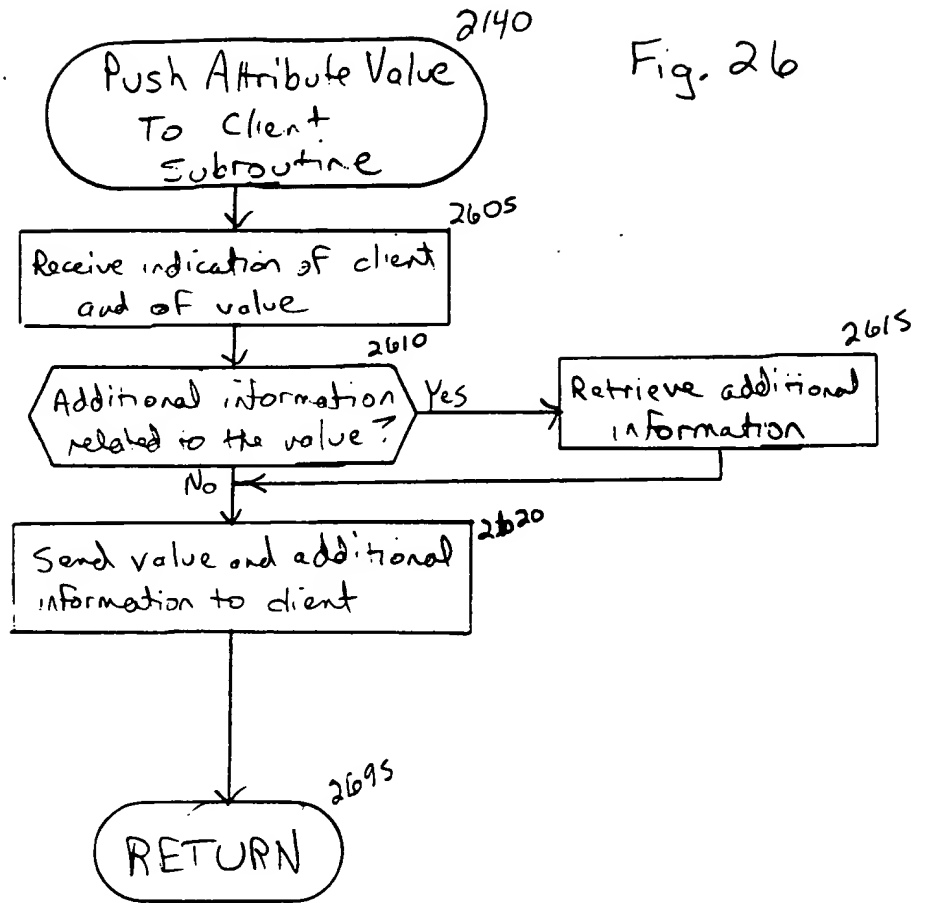 2140
Fig. 26
Push Attribute Value
To Client
Subroutine
2605
Receive indication of client
and of value
2610
Additional information
related to the value?
Yes
2615
Retrieve additional
information
No
2620
Send value and additional
information to client
2695
RETURN